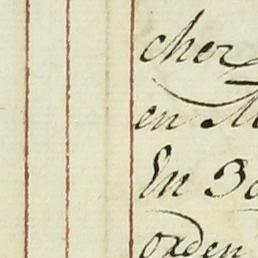 cher
en M
En 30
orden